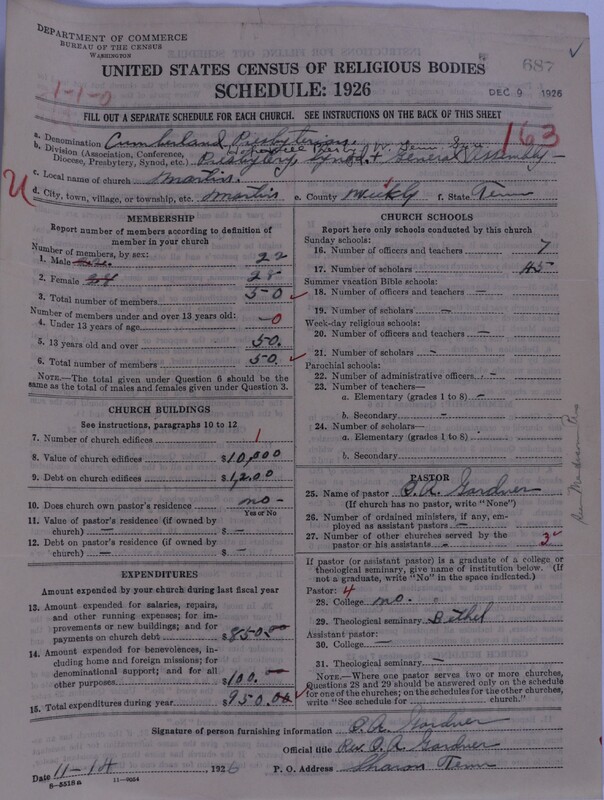 DEPARTMENT OF COMMERCE
BUREAU OF THE CENSUS
WASHINGTON
687
UNITED STATES CENSUS OF RELIGIOUS BODIES
SCHEDULE: 1926
1-1-0
DEC 9 1926
FILL OUT A SEPARATE SCHEDULE FOR EACH CHURCH. SEE INSTRUCTIONS ON THE BACK OF THIS SHEET
163
a. Denomination Cumberland Presbyterian
b. Division (Association, Conference, Diocese, Presbytery, Synod, etc.) Presbytery, Synod & General Assembly
c. Local name of church Martin
d. City, town, village, or township, etc. Martin e. County f. State Tenn
MEMBERSHIP
Report number of members according to definition of member in your church
Number of members, by sex:
1. Male 22
2. Female 28
3. Total number of members 50
Number of members under and over 13 years old:
4. Under 13 years of age 0
5. 13 years old and over 50.
6. Total number of members 50.
NOTE.—The total given under Question 6 should be the same as the total of males and females given under Question 3.
CHURCH BUILDINGS
See instructions, paragraphs 10 to 12
7. Number of church edifices 1
8. Value of church edifices $10,000
9. Debt on church edifices $1,200
10. Does church own pastor's residence? no-
Yes or No
11. Value of pastor's residence (if owned by church) — $ —
12. Debt on pastor's residence (if owned by church) — $ —
EXPENDITURES
Amount expended by your church during last fiscal year
13. Amount expended for salaries, repairs, and other running expenses; for improvements or new buildings; and for payments on church debt $850
14. Amount expended for benevolences, including home and foreign missions; for denominational support; and for all other purposes $100.
15. Total expenditures during year $950.00
CHURCH SCHOOLS
Report here only schools conducted by this church
Sunday schools:
16. Number of officers and teachers 7
17. Number of scholars 45
Summer vacation Bible schools:
18. Number of officers and teachers —
19. Number of scholars —
Week-day religious schools:
20. Number of officers and teachers —
21. Number of scholars -
Parochial schools:
22. Number of administrative officers -
23. Number of teachers—
a. Elementary (grades 1 to 8) —
b. Secondary —
24. Number of scholars—
a. Elementary (grades 1 to 8) —
b. Secondary
PASTOR
25. Name of pastor Gardner
(If church has no pastor, write "None")
26. Number of ordained ministers, if any, employed as assistant pastors —
27. Number of other churches served by the pastor or his assistants - 3
If pastor (or assistant pastor) is a graduate of a college or theological seminary, give name of institution below. (If not a graduate, write "No" in the space indicated.)
Pastor: 4
28. College no.
29. Theological seminary Bethel
Assistant pastor:
30. College —
31. Theological seminary —
NOTE.—Where one pastor serves two or more churches, Questions 28 and 29 should be answered only on the schedule for one of the churches; on the schedules for the other churches, write "See schedule for church."
Signature of person furnishing information Gardner
Official title Rev. Gardner
Date 11-14 1926 P. O. Address Sharon Tenn
8-5518a 11-9054